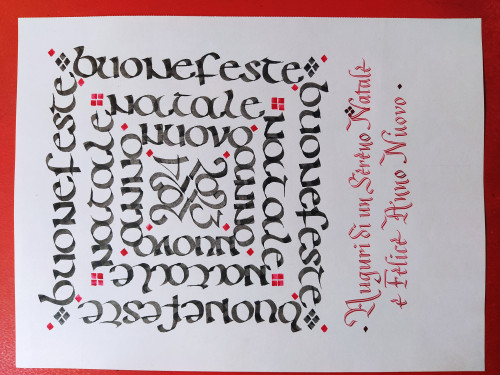 buonefeste
buonefeste
buonefeste
buonefeste
natale
natale
natale
natale
nuovo
anno
nuovo
anno
2024
Auguri di un Sereno Natale
e Felice Anno Nuovo